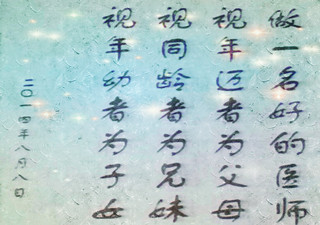 做一名好的医师
视年迈者为父母
视同龄者为兄妹
视年幼者为子女
二〇一四年八月八日